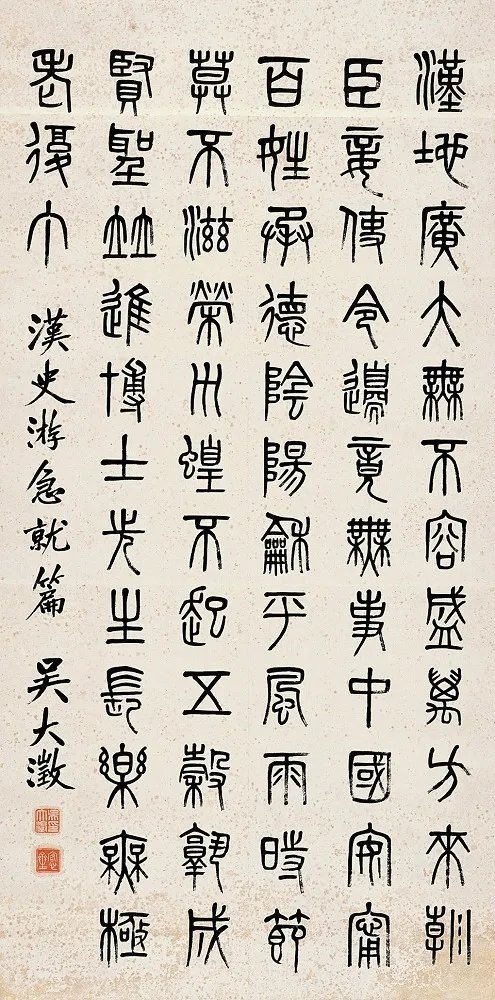 漢地廣大無不容盛萬方來朝
臣妾使令邊竟無事中國安甯
百姓承德陰陽龢平風雨時節
莫不滋榮災蝗不起五穀孰成
賢聖竝進博士先生長樂無極
老復丁
漢史游急就篇 吳大澂